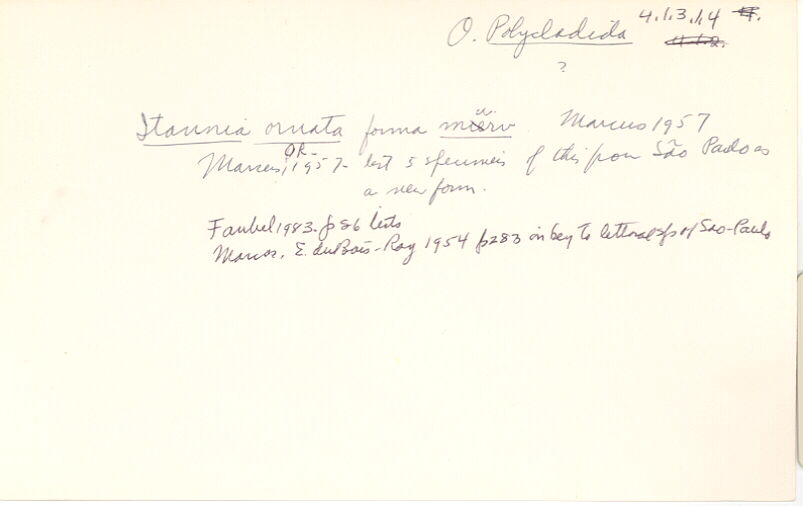 O. Polycladida 4.1.3.1.4
?
Itannia ornata forma Marcus 1957
Marcus, 1957- list 5 specimens of this from São Paulo as
a new form.
Faubel 1983. p86 lists
Marcus, E. duBois-Ray 1954 p283 in key to littoral sp of Sao-Paulo